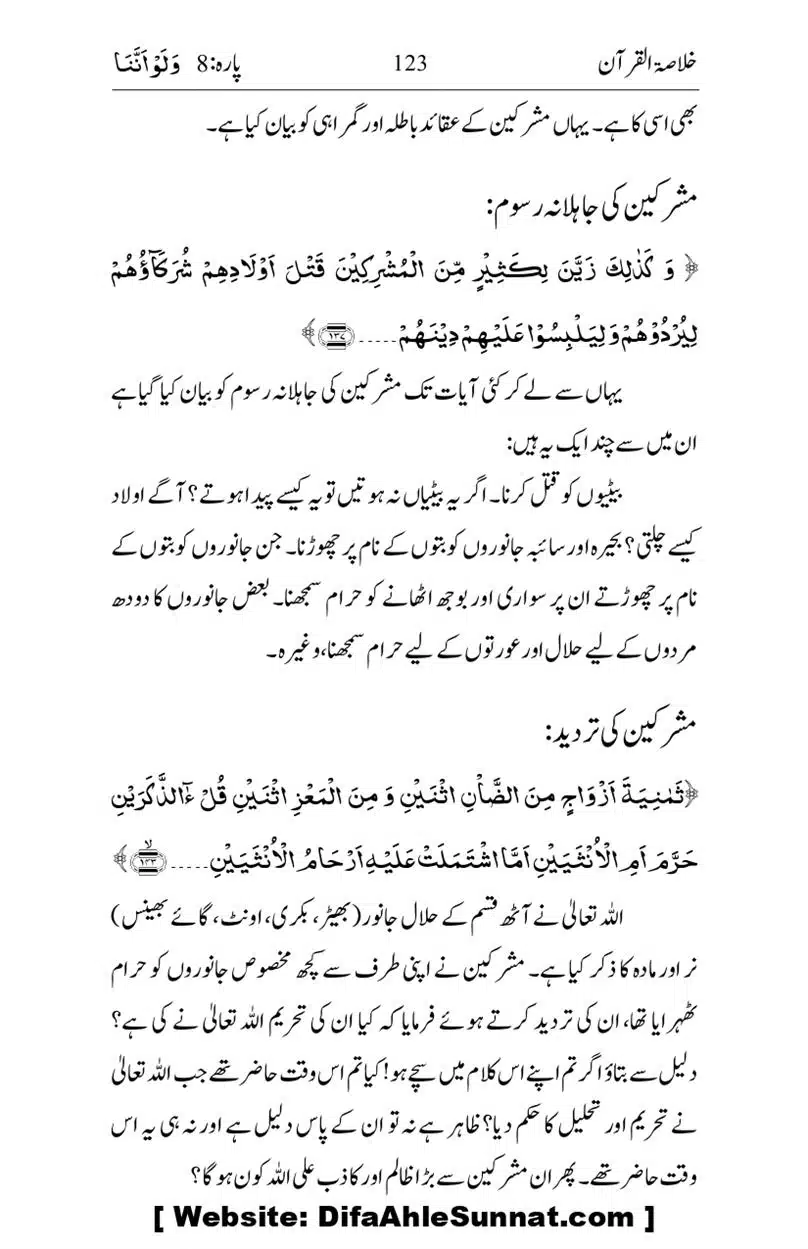 خلاصۃ القرآن 123 پارہ:8 وَلَوْ اَنَّنَا
بھی اسی کا ہے۔ یہاں مشرکین کے عقائد باطلہ اور گمراہی کو بیان کیا ہے۔
مشرکین کی جاہلانہ رسوم:
﴿ وَ كَذٰلِكَ زَيَّنَ لِكَثِيْرٍ مِّنَ الْمُشْرِكِيْنَ قَتْلَ اَوْلَادِهِمْ شُرَكَآؤُهُمْ
لِيُرْدُوْهُمْ وَ لِيَلْبِسُوْا عَلَيْهِمْ دِيْنَهُمْ.....﴿۱۳۷﴾﴾
یہاں سے لے کر کئی آیات تک مشرکین کی جاہلانہ رسوم کو بیان کیا گیا ہے
ان میں سے چند ایک یہ ہیں:
بیٹیوں کو قتل کرنا۔ اگر یہ بیٹیاں نہ ہوتیں تو یہ کیسے پیدا ہوتے؟ آگے اولاد
کیسے چلتی؟ بحیرہ اور سائبہ جانوروں کو بتوں کے نام پر چھوڑنا۔ جن جانوروں کو بتوں کے
نام پر چھوڑتے ان پر سواری اور بوجھ اٹھانے کو حرام سمجھنا۔ بعض جانوروں کا دودھ
مردوں کے لیے حلال اور عورتوں کے لیے حرام سمجھنا، وغیرہ۔
مشرکین کی تردید:
﴿ثَمٰنِيَةَ اَزْوَاجٍ مِنَ الضَّاْنِ اثْنَيْنِ وَ مِنَ الْمَعْزِ اثْنَيْنِ قُلْ ءٰٓالذَّكَرَيْنِ
حَرَّمَ اَمِ الْاُنْثَيَيْنِ اَمَّا اشْتَمَلَتْ عَلَيْهِ اَرْحَامُ الْاُنْثَيَيْنِ.....﴿۱۴۳﴾ۙ﴾
اللہ تعالیٰ نے آٹھ قسم کے حلال جانور (بھیڑ، بکری، اونٹ، گائے بھینس)
نر اور مادہ کا ذکر کیا ہے۔ مشرکین نے اپنی طرف سے کچھ مخصوص جانوروں کو حرام
ٹھہرایا تھا، ان کی تردید کرتے ہوئے فرمایا کہ کیا ان کی تحریم اللہ تعالیٰ نے کی ہے؟
دلیل سے بتاؤ اگر تم اپنے اس کلام میں سچے ہو! کیا تم اس وقت حاضر تھے جب اللہ تعالیٰ
نے تحریم اور تحلیل کا حکم دیا؟ ظاہر ہے نہ تو ان کے پاس دلیل ہے اور نہ ہی یہ اس
وقت حاضر تھے۔ پھر ان مشرکین سے بڑا ظالم اور کاذب علی اللہ کون ہو گا؟
[ Website: DifaAhleSunnat.com ]